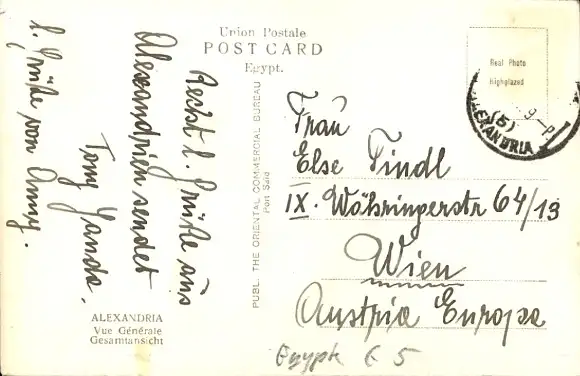 Union Postale
POST CARD
Egypt.
Real Photo
Highglazed
ALEXANDRIA
(5)
9-P
Recht l. Grüße aus
Alexandrien sendet
Tony Janda.
l. Grüße von Anny.
PUBL. THE ORIENTAL COMMERCIAL BUREAU
Port Said
Frau
Else Tindl
IX. Währingerstr 64/13
Wien
Austria Europa
ALEXANDRIA
Vue Générale
Gesamtansicht
Egypt € 5